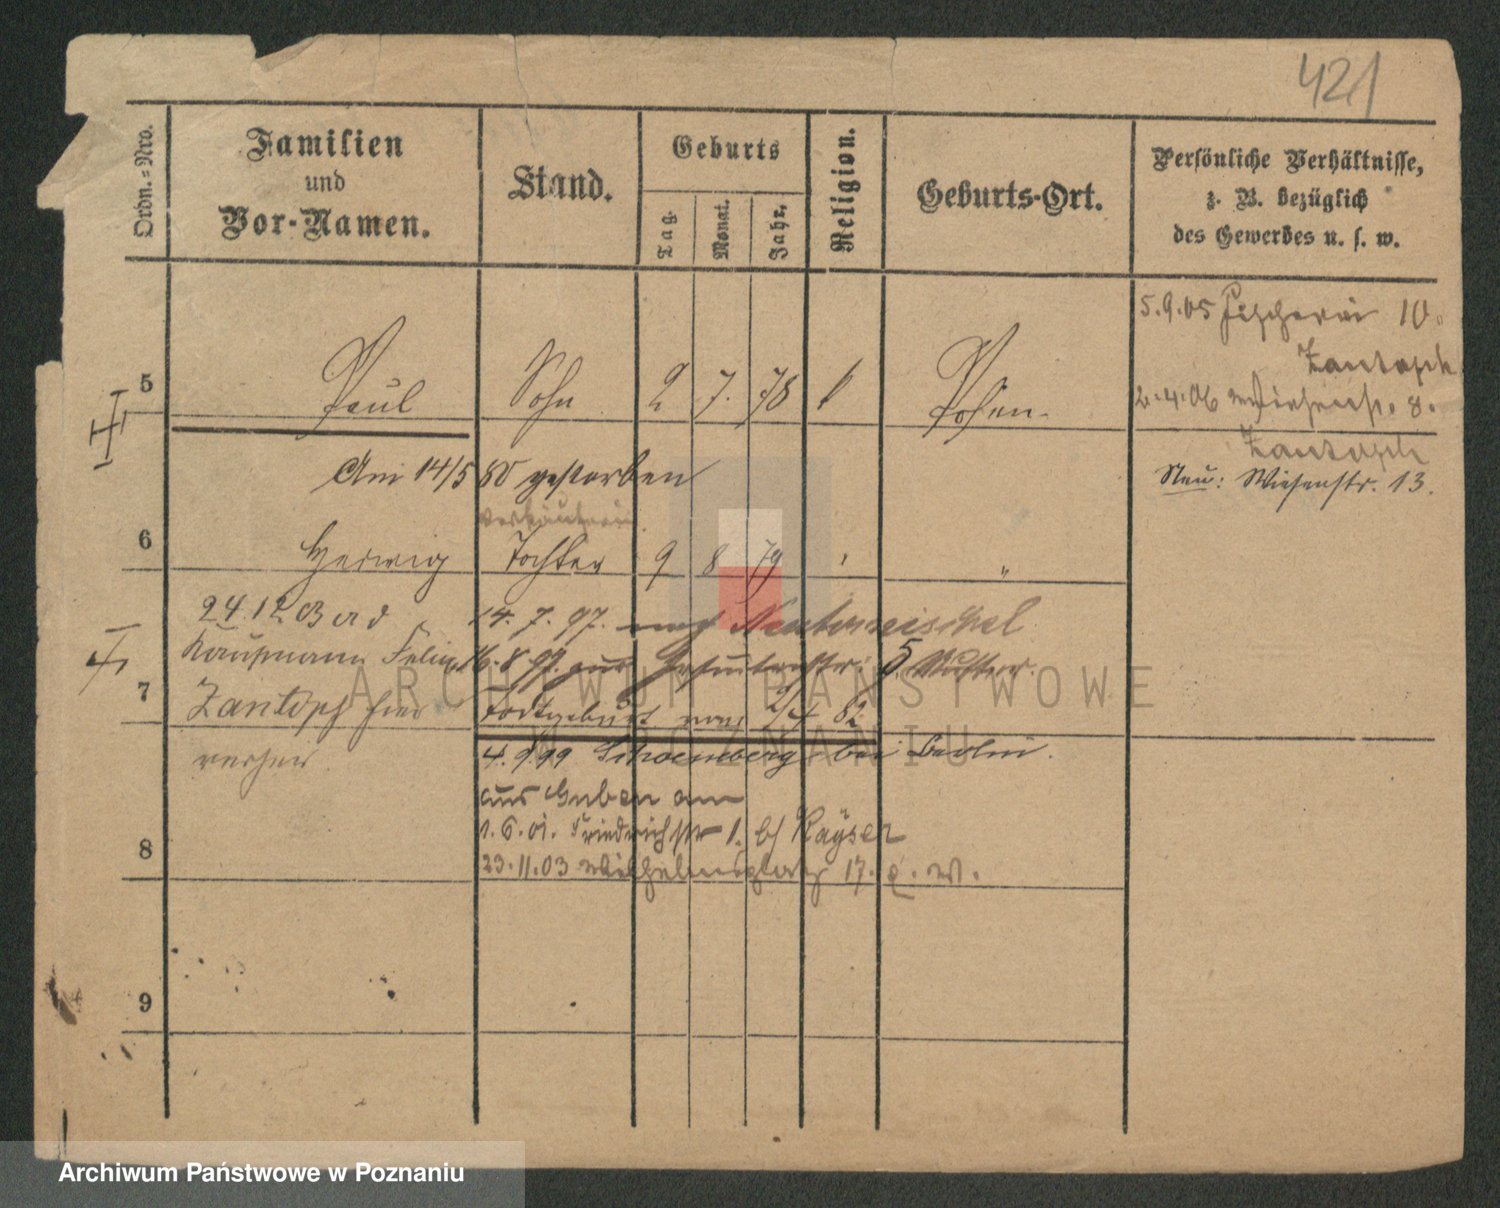 421
Ordn.-Nro.
Familien
und
Vor-Namen.
Stand.
Geburts
Tag.
Monat.
Jahr.
Religion.
Geburts-Ort.
Persönliche Verhältnisse,
z. B. bezüglich
des Gewerbes u. s. w.
5 Paul Sohn 2 7. 78 Posen.
5.9.05 Fischerei 10.
Zantoph
2.4.06 Wiesenstr. 8.
Zantoph
Neu: Wiesenstr. 13.
Am 14/5 80 gestorben
Verkäuferin
6 Hedwig Tochter 9 8 79 "
24.12.03 a d
14. 7. 97. nach
Kaufmann Felix
16.8.97. aus 5
7
Zantoph hier
Todtgeburt vom 2/4 82
verh
4.9.99 Schoeneberg bei Berlin.
aus Guben am
8
1.6.01. Friedrichstr 1. b/ Kayser
23.11.03 Wilhelmsplatz 17.
9
ARCHIWUM PAŃSTWOWE
W POZNANIU
Archiwum Państwowe w Poznaniu